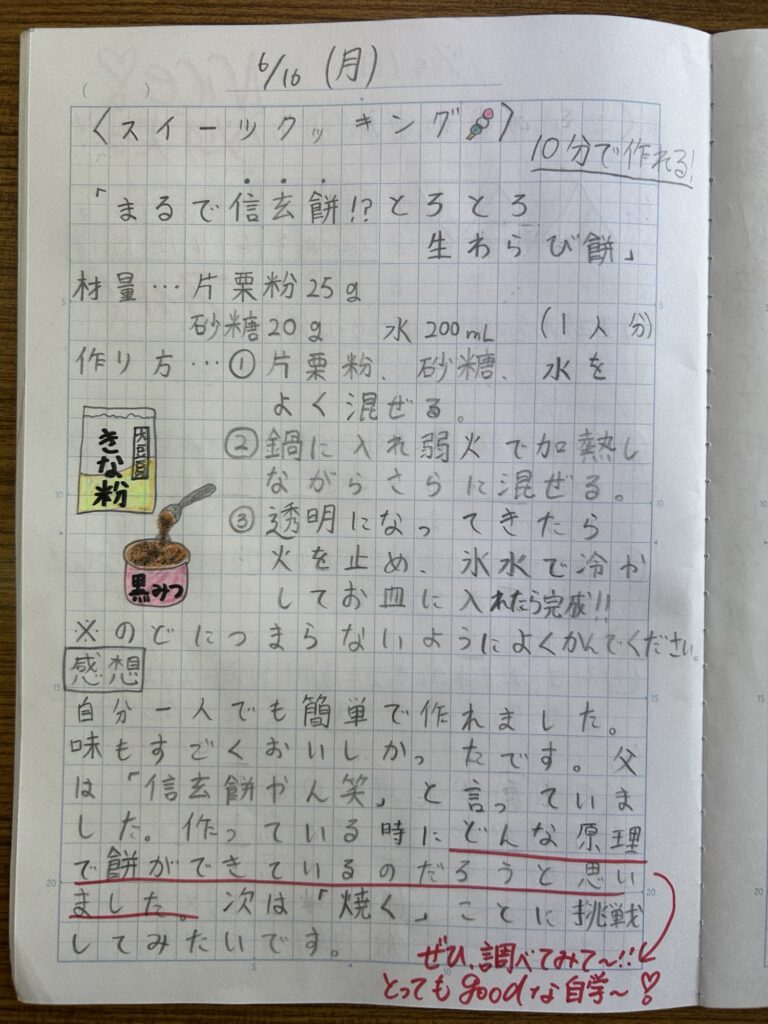 6/16 (月)
( )
〈スイーツクッキング🍡〉
10分で作れる!
「まるで信玄餅!?とろとろ
生わらび餅」
材量…片栗粉25g
砂糖20g 水200mL (1人分)
作り方…①片栗粉、砂糖、水を
よく混ぜる。
②鍋に入れ弱火で加熱し
ながらさらに混ぜる。
③透明になってきたら
火を止め、氷水で冷か
してお皿に入れたら完成!!
大豆
きな粉
黒みつ
※のどにつまらないようによくかんでください。
感想
自分一人でも簡単で作れました。
味もすごくおいしかったです。父
は「信玄餅やん笑」と言っていま
した。作っている時にどんな原理
で餅ができているのだろうと思い
ました。次は「焼く」ことに挑戦
してみたいです。
ぜひ、調べてみて〜!!
とってもgoodな自学〜♡